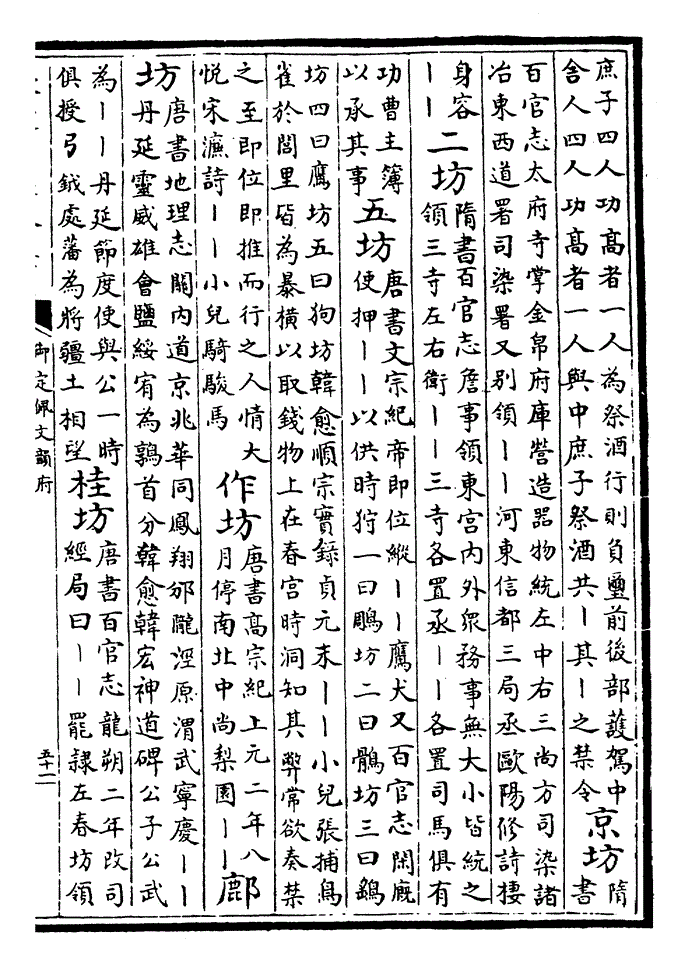 庶子四人功高者一人為祭酒行則負璽前後部護駕中
舍人四人功高者一人與中庶子祭酒共丨其丨之禁令
京坊
隋
書
百官志太府寺掌金帛府庫營造器物統左中右三尚方司染諸
冶東西道署司染署又别領丨丨河東信都三局丞歐陽修詩棲
身容
丨丨
二坊
隋書百官志詹事領東宮内外衆務事無大小皆統之
領三寺左右衛丨丨三寺各置丞丨丨各置司馬俱有
功曹主簿
以承其事
五坊
唐書文宗紀帝即位縱丨丨鷹犬又百官志閑廐
使押丨丨以供時狩一曰鵰坊二曰鶻坊三曰鷂
坊四曰鷹坊五曰狗坊韓愈順宗實録貞元末丨丨小兒張捕鳥
雀於閭里皆為暴横以取錢物上在春宮時洞知其弊常欲奏禁
之至即位即推而行之人情大
悦宋濂詩丨丨小兒騎駿馬
作坊
唐書高宗紀上元二年八
月停南北中尚梨園丨丨
鄜
坊
唐書地理志關内道京兆華同鳳翔邠隴涇原渭武寧慶丨丨
丹延靈威雄會鹽綏宥為鶉首分韓愈韓宏神道碑公子公武
為丨丨丹延節度使與公一時
俱授弓鉞處藩為將疆土相望
桂坊
唐書百官志龍朔二年改司
經局曰丨丨罷隸左春坊領
御定佩文韻府
五十二